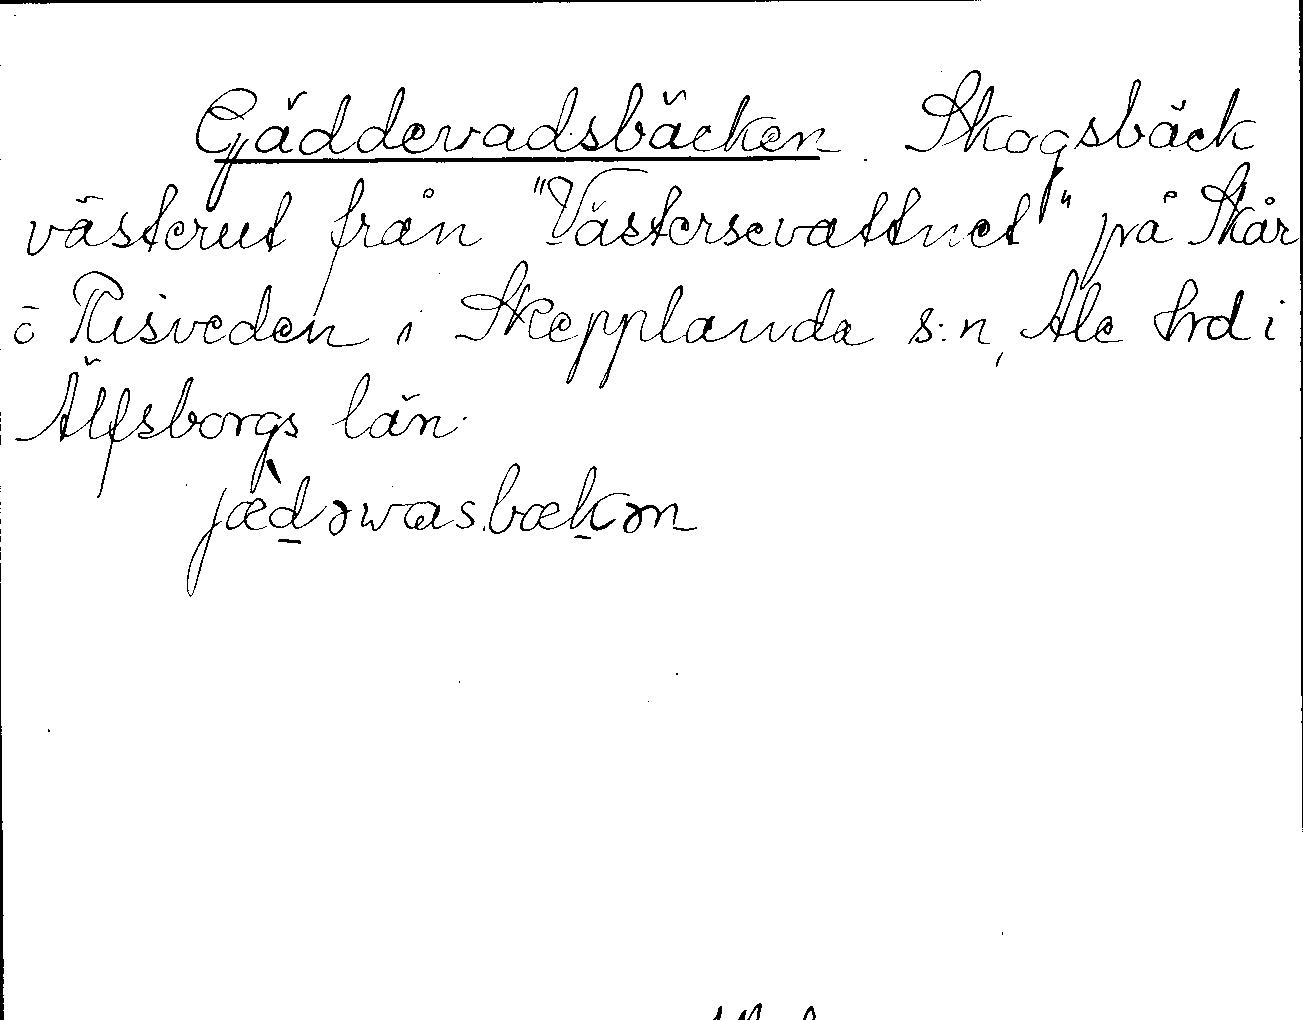 Gäddevadsbäcken. Skogsbäck
västerut från "Västersevattnet" på Skår
ö Risveden i Skepplanda s:n, Ale hrd i
Älfsborgs län.
jæ̀d̲əwasbæk̲ən